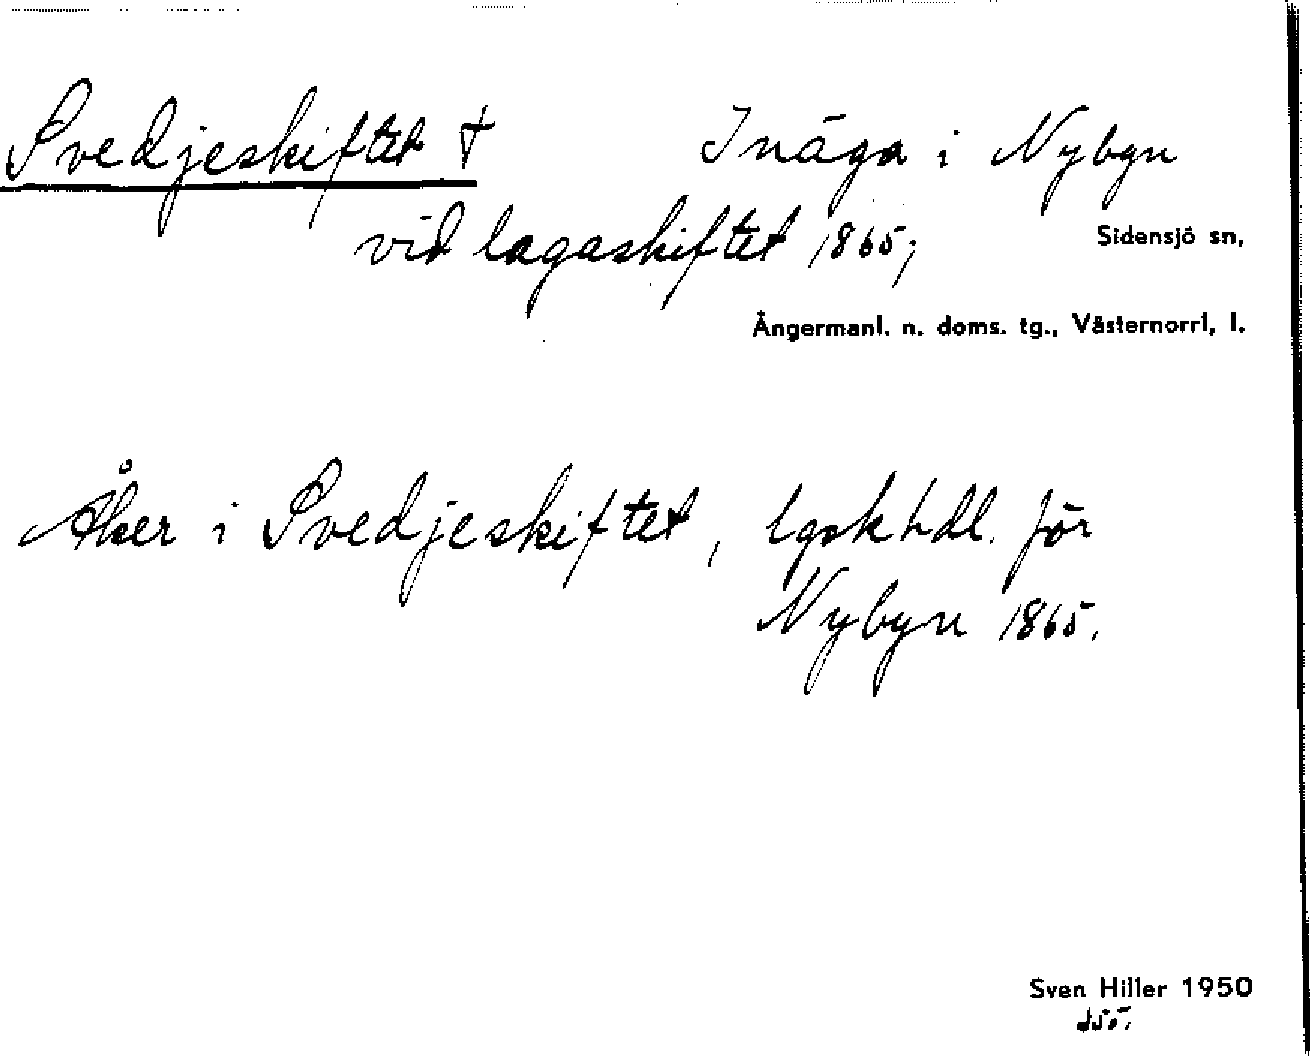 Svedjeskiftet † Inäga i Nybyn
vid lagaskiftet 1865;
Sidensjö sn,
Ångermanl. n. doms. tg., Västernorrl, l.
Åker i Svedjeskiftet, lgskhdl. för
Nybyn 1865.
Sven Hiller 1950